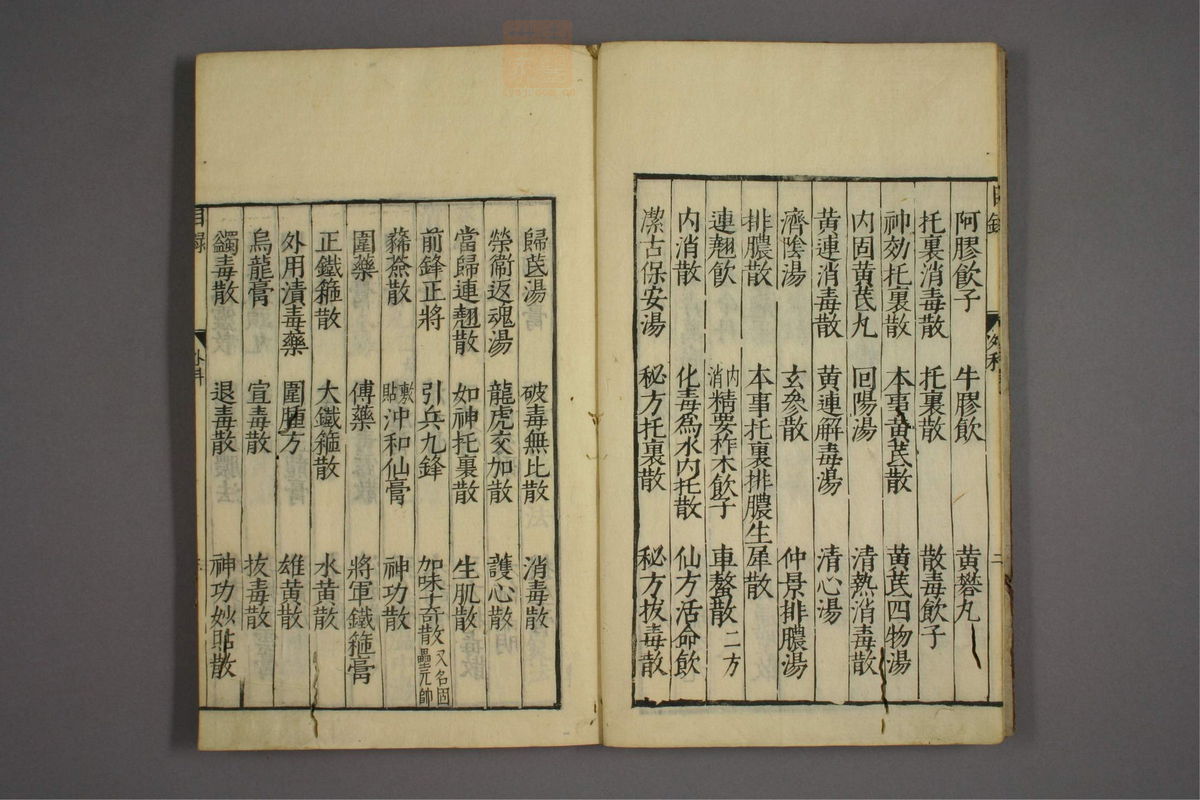 阿膠飲子 牛膠飲 黃礬丸
托裏消毒散 托裏散 散毒飲子
神効托裏散 本事黃茋散 黃茋四物湯
内固黃茋丸 回陽湯 清熱消毒散
黃連消毒散 黃連解毒湯 清心湯
濟陰湯 玄參散 仲景排膿湯
排膿散 本事托裏排膿生犀散
連翹飲 内消精要柞木飲子 車螯散二方
内消散 化毒為水内托散 仙方活命飲
潔古保安湯 秘方托裏散 秘方拔毒散
歸茋湯 破毒無比散 消毒散
榮衛返魂湯 龍虎交加散 護心散
當歸連翹散 如神托裏散 生肌散
前鋒正將 引兵九鋒 加味十奇散又名固壘元帥
豨薟散 敷貼沖和仙膏 神功散
圍藥 傅藥 將軍鐵箍膏
正鐵箍散 大鐵箍散 水黃散
外用漬毒藥 圍腫方 雄黃散
烏龍膏 宣毒散 拔毒散
蠲毒散 退毒散 神功妙貼散
目録